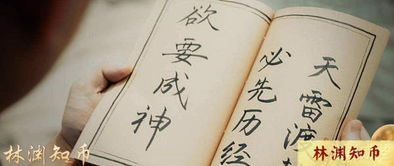 欲要成神
必先历经
天雷渡
林渊知币
林渊知币